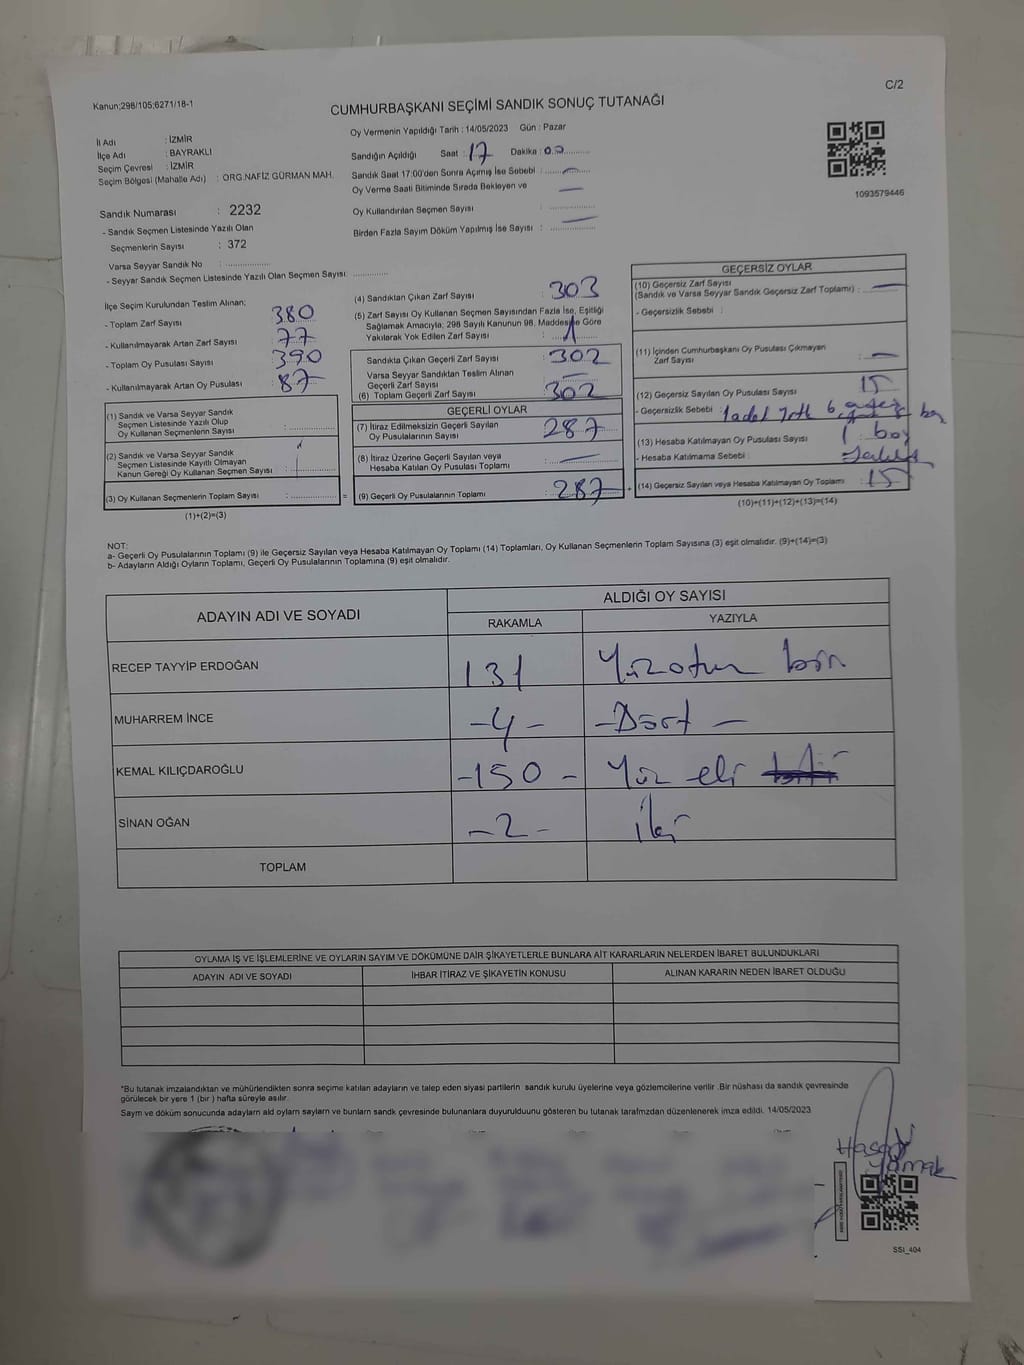 C/2
Kanun;298/105;6271/18-1
CUMHURBAŞKANI SEÇİMİ SANDIK SONUÇ TUTANAĞI
İl Adı : İZMİR
İlçe Adı : BAYRAKLI
Seçim Çevresi : İZMİR
Seçim Bölgesi (Mahalle Adı) : ORG.NAFİZ GÜRMAN MAH.
Sandık Numarası : 2232
- Sandık Seçmen Listesinde Yazılı Olan
Seçmenlerin Sayısı : 372
Varsa Seyyar Sandık No :
- Seyyar Sandık Seçmen Listesinde Yazılı Olan Seçmen Sayısı:
Oy Vermenin Yapıldığı Tarih : 14/05/2023 Gün : Pazar
Sandığın Açıldığı Saat : 17 Dakika : 00
Sandık Saat 17:00'den Sonra Açımış İse Sebebi : —
Oy Verme Saati Bitiminde Sırada Bekleyen ve —
Oy Kullandırılan Seçmen Sayısı :
Birden Fazla Sayım Döküm Yapılmış İse Sayısı : —
1093579446
İlçe Seçim Kurulundan Teslim Alınan;
- Toplam Zarf Sayısı : 380
- Kullanılmayarak Artan Zarf Sayısı : 77
- Toplam Oy Pusulası Sayısı : 390
- Kullanılmayarak Artan Oy Pusulası : 87
(1) Sandık ve Varsa Seyyar Sandık
Seçmen Listesinde Yazılı Olup
Oy Kullanan Seçmenlerin Sayısı :
(2) Sandık ve Varsa Seyyar Sandık
Seçmen Listesinde Kayıtlı Olmayan
Kanun Gereği Oy Kullanan Seçmen Sayısı :
(3) Oy Kullanan Seçmenlerin Toplam Sayısı : =
(1)+(2)=(3)
(4) Sandıktan Çıkan Zarf Sayısı : 303
(5) Zarf Sayısı Oy Kullanan Seçmen Sayısından Fazla İse, Eşitliği
Sağlamak Amacıyla; 298 Sayılı Kanunun 98. Maddesine Göre
Yakılarak Yok Edilen Zarf Sayısı : 1
Sandıkta Çıkan Geçerli Zarf Sayısı : 302
Varsa Seyyar Sandıktan Teslim Alınan
Geçerli Zarf Sayısı : —
(6) Toplam Geçerli Zarf Sayısı : 302
GEÇERLİ OYLAR
(7) İtiraz Edilmeksizin Geçerli Sayılan
Oy Pusulalarının Sayısı : 287
(8) İtiraz Üzerine Geçerli Sayılan veya
Hesaba Katılan Oy Pusulası Toplamı : —
(9) Geçerli Oy Pusulalarının Toplamı : 287 +
GEÇERSİZ OYLAR
(10) Geçersiz Zarf Sayısı
(Sandık ve Varsa Seyyar Sandık Geçersiz Zarf Toplamı) : —
- Geçersizlik Sebebi :
(11) İçinden Cumhurbaşkanı Oy Pusulası Çıkmayan
Zarf Sayısı : —
(12) Geçersiz Sayılan Oy Pusulası Sayısı : 15
- Geçersizlik Sebebi : 1 adet
(13) Hesaba Katılmayan Oy Pusulası Sayısı :
- Hesaba Katılmama Sebebi :
(14) Geçersiz Sayılan veya Hesaba Katılmayan Oy Toplamı : 15
(10)+(11)+(12)+(13)=(14)
NOT:
a- Geçerli Oy Pusulalarının Toplamı (9) ile Geçersiz Sayılan veya Hesaba Katılmayan Oy Toplamı (14) Toplamları, Oy Kullanan Seçmenlerin Toplam Sayısına (3) eşit olmalıdır. (9)+(14)=(3)
b- Adayların Aldığı Oyların Toplamı, Geçerli Oy Pusulalarının Toplamına (9) eşit olmalıdır.
ADAYIN ADI VE SOYADI ALDIĞI OY SAYISI
RAKAMLA YAZIYLA
RECEP TAYYİP ERDOĞAN 131 Yüzotuz bir
MUHARREM İNCE -4- -Dört-
KEMAL KILIÇDAROĞLU -150- Yüz eli
SİNAN OĞAN -2- iki
TOPLAM
OYLAMA İŞ VE İŞLEMLERİNE VE OYLARIN SAYIM VE DÖKÜMÜNE DAİR ŞİKAYETLERLE BUNLARA AİT KARARLARIN NELERDEN İBARET BULUNDUKLARI
ADAYIN ADI VE SOYADI İHBAR İTİRAZ VE ŞİKAYETİN KONUSU ALINAN KARARIN NEDEN İBARET OLDUĞU
*Bu tutanak imzalandıktan ve mühürlendikten sonra seçime katılan adayların ve talep eden siyasi partilerin sandık kurulu üyelerine veya gözlemcilerine verilir .Bir nüshası da sandık çevresinde
görülecek bir yere 1 (bir ) hafta süreyle asılır.
Sayım ve döküm sonucunda adayların ald oyların sayların ve bunların sandk çevresinde bulunanlara duyurulduunu gösteren bu tutanak tarafımzdan düzenlenerek imza edildi. 14/05/2023
Yamak
SSI_404